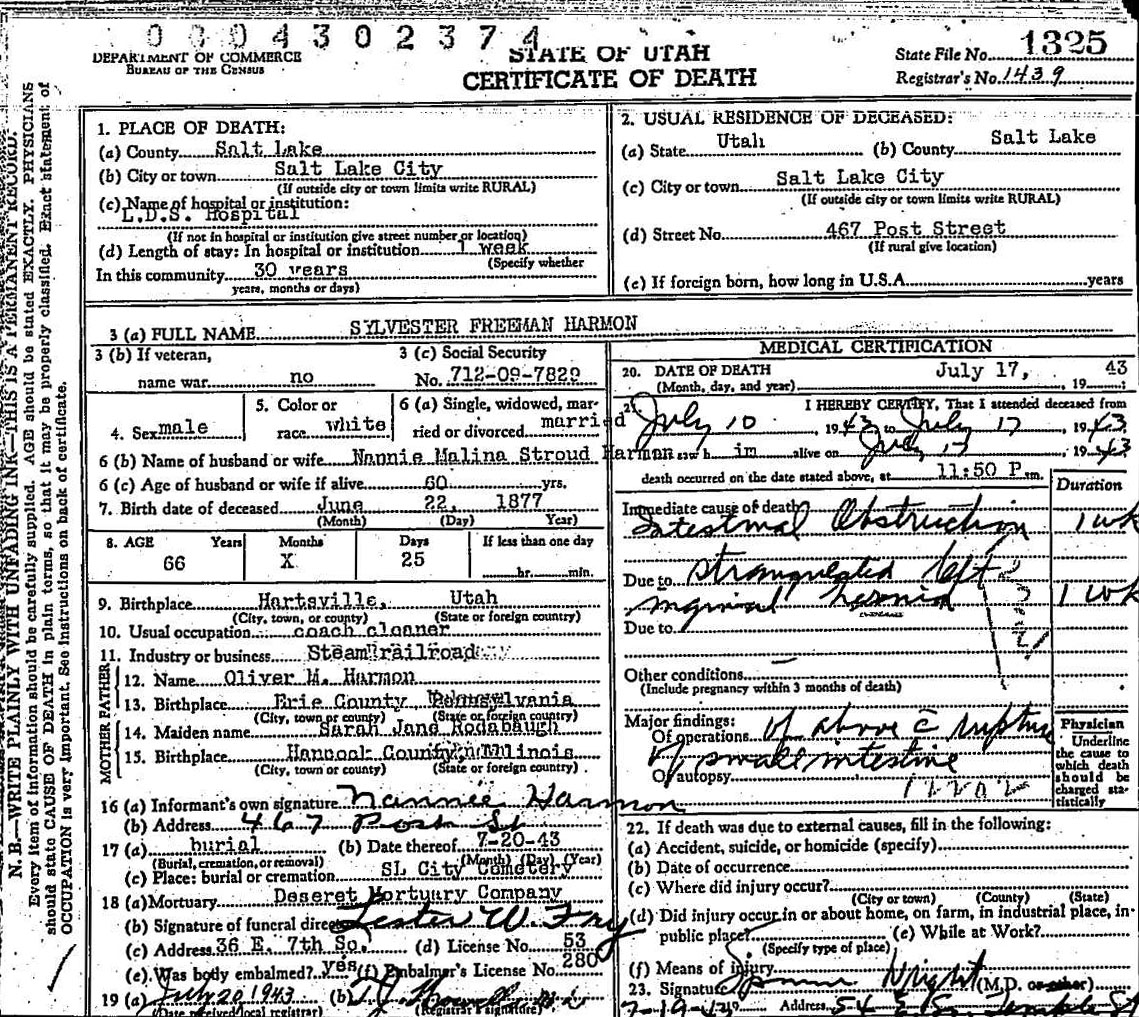 0004302374
DEPARTMENT OF COMMERCE
BUREAU OF THE CENSUS
STATE OF UTAH
CERTIFICATE OF DEATH
State File No. 1325
Registrar's No. 1439
N. B.—WRITE PLAINLY WITH UNFADING INK—THIS IS A PERMANENT RECORD.
Every item of information should be carefully supplied. AGE should be stated EXACTLY. PHYSICIANS
should state CAUSE OF DEATH in plain terms, so that it may be properly classified. Exact statement of
OCCUPATION is very important. See instructions on back of certificate.
1. PLACE OF DEATH:
(a) County Salt Lake
(b) City or town Salt Lake City
(If outside city or town limits write RURAL)
(c) Name of hospital or institution:
L.D.S. Hospital
(If not in hospital or institution give street number or location)
(d) Length of stay: In hospital or institution 1 week
(Specify whether
In this community 30 years
years, months or days)
2. USUAL RESIDENCE OF DECEASED:
(a) State Utah (b) County Salt Lake
(c) City or town Salt Lake City
(If outside city or town limits write RURAL)
(d) Street No. 467 Post Street
(If rural give location)
(e) If foreign born, how long in U.S.A. years
3 (a) FULL NAME SYLVESTER FREEMAN HARMON
3 (b) If veteran, name war no
3 (c) Social Security No. 712-09-7829
4. Sex male
5. Color or race white
6 (a) Single, widowed, married or divorced married
6 (b) Name of husband or wife Nannie Malina Stroud Harman
6 (c) Age of husband or wife if alive 60 yrs.
7. Birth date of deceased June 22, 1877
(Month) (Day) Year)
8. AGE Years Months Days If less than one day
66 X 25 hr. min.
9. Birthplace Hartsville, Utah
(City, town, or county) (State or foreign country)
10. Usual occupation coach cleaner
11. Industry or business Steam railroad
FATHER
12. Name Oliver M. Harmon
13. Birthplace Erie County Pennsylvania
(City, town or county) (State or foreign country)
MOTHER
14. Maiden name Sarah Jane Rodabaugh
15. Birthplace Hancock County, Illinois
(City, town or county) (State or foreign country)
16 (a) Informant's own signature Nannie Harmon
(b) Address 467 Post St
17 (a) burial (b) Date thereof 7-20-43
(Burial, cremation, or removal) (Month) (Day) (Year)
(c) Place: burial or cremation SL City Cemetery
18 (a) Mortuary Deseret Mortuary Company
(b) Signature of funeral director Lester W Fry
(c) Address 36 E. 7th So. (d) License No. 53
(e) Was body embalmed? yes (f) Embalmer's License No. 280
19 (a) July 20 1943 (b)
(Date received local registrar) (Registrar's signature)
MEDICAL CERTIFICATION
20. DATE OF DEATH July 17, 1943;
(Month, day, and year)
21. I HEREBY CERTIFY, That I attended deceased from
July 10, 1943 to July 17, 1943
saw h im alive on July 17, 1943
death occurred on the date stated above, at 11:50 P.m.
Duration
Immediate cause of death
Intestinal Obstruction 1 wk
Due to strangulated left
inguinal hernia 1 wk
Due to
Other conditions
(Include pregnancy within 3 months of death)
Major findings:
Of operations of above c̄ rupture
of small intestine
Of autopsy
Physician
Underline
the cause to
which death
should be
charged sta-
tistically
22. If death was due to external causes, fill in the following:
(a) Accident, suicide, or homicide (specify)
(b) Date of occurrence
(c) Where did injury occur?
(City or town) (County) (State)
(d) Did injury occur in or about home, on farm, in industrial place, in
public place? (e) While at Work?
(Specify type of place)
(f) Means of injury
23. Signature Wright (M.D. or other)
7-19-43 Address 54 E So. Temple St